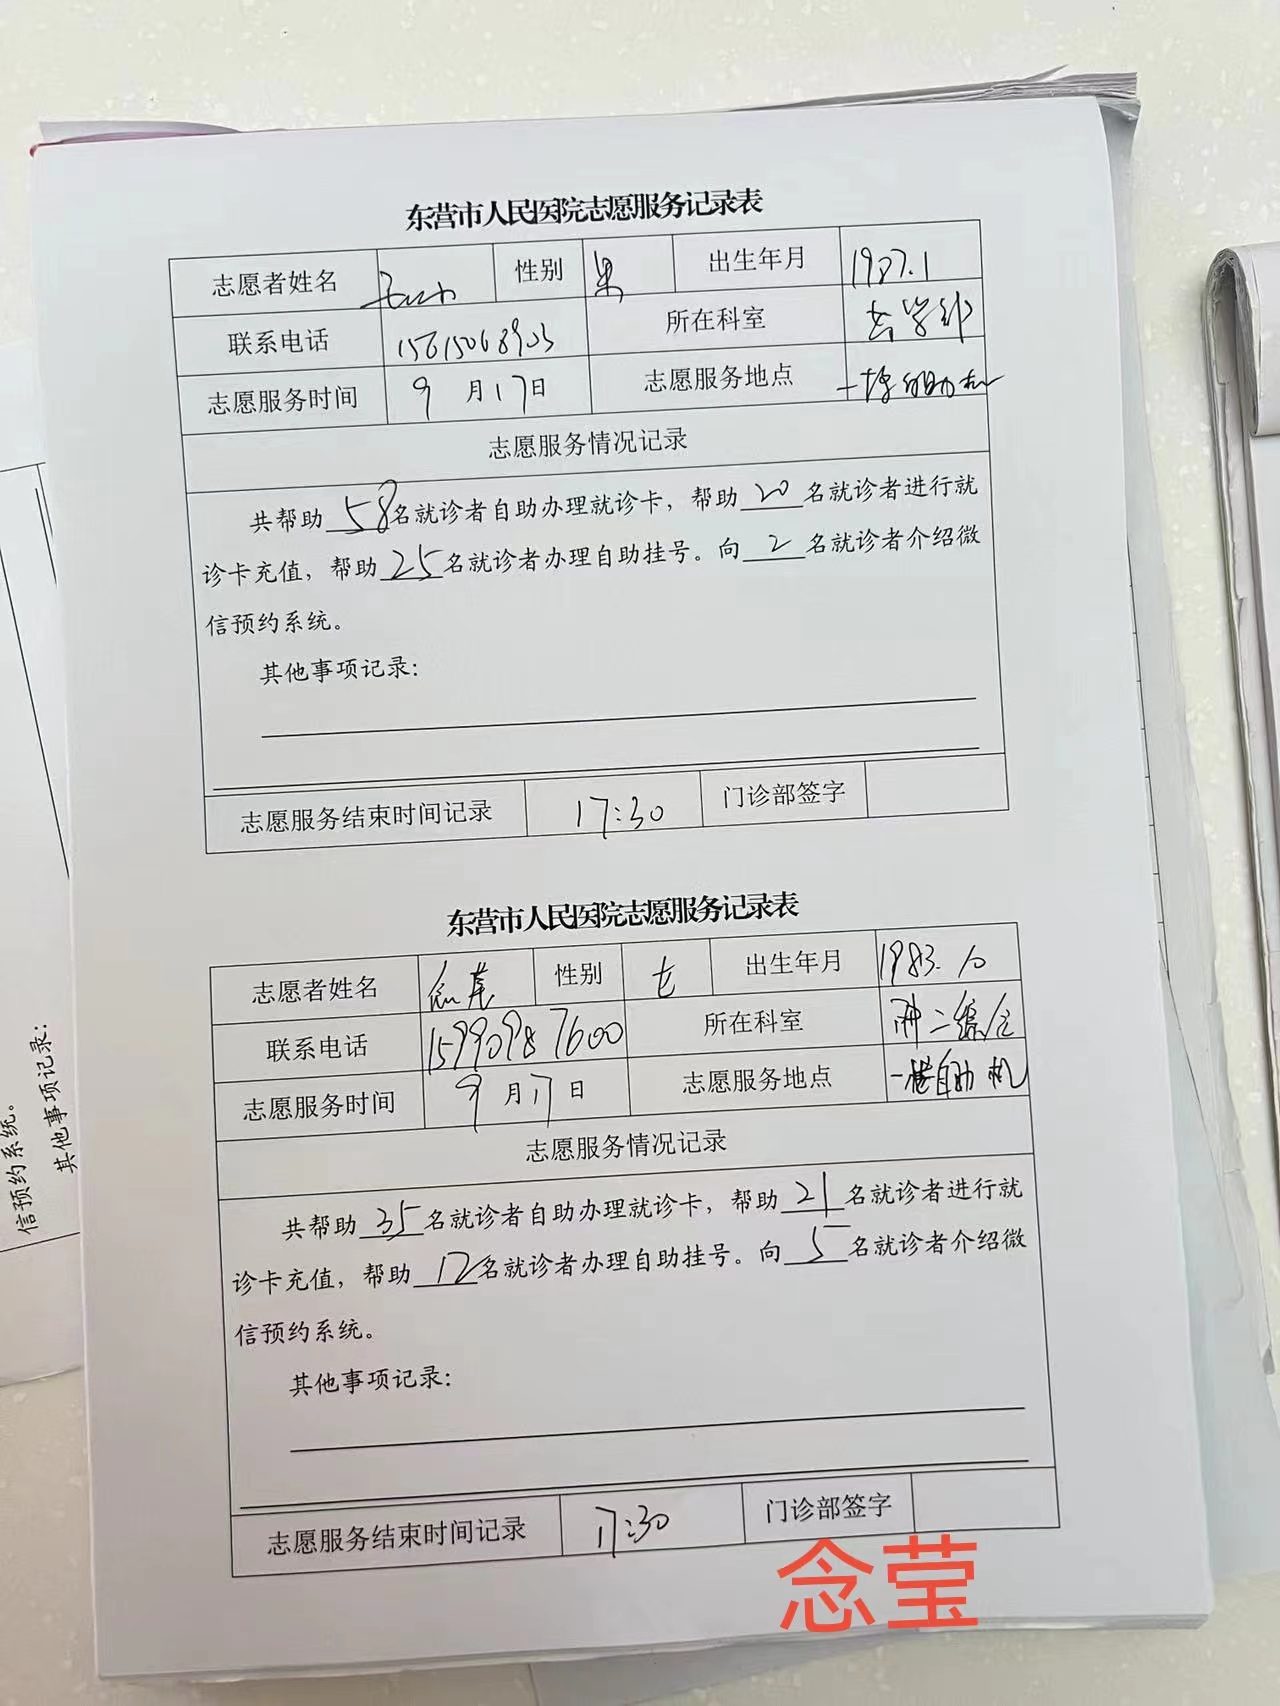 东营市人民医院志愿服务记录表
志愿者姓名 性别 男 出生年月 1987.1
联系电话 15615068903 所在科室
志愿服务时间 9月17日 志愿服务地点 一楼自助机
志愿服务情况记录
共帮助58名就诊者自助办理就诊卡，帮助20名就诊者进行就
诊卡充值，帮助25名就诊者办理自助挂号。向2名就诊者介绍微
信预约系统。
其他事项记录：
志愿服务结束时间记录 17:30 门诊部签字
东营市人民医院志愿服务记录表
志愿者姓名 念莹 性别 女 出生年月 1983.10
联系电话 15990987600 所在科室
志愿服务时间 9月17日 志愿服务地点 一楼自助机
志愿服务情况记录
共帮助35名就诊者自助办理就诊卡，帮助21名就诊者进行就
诊卡充值，帮助12名就诊者办理自助挂号。向5名就诊者介绍微
信预约系统。
其他事项记录：
志愿服务结束时间记录 17:30 门诊部签字
念莹
信预约系统。
其他事项记录：